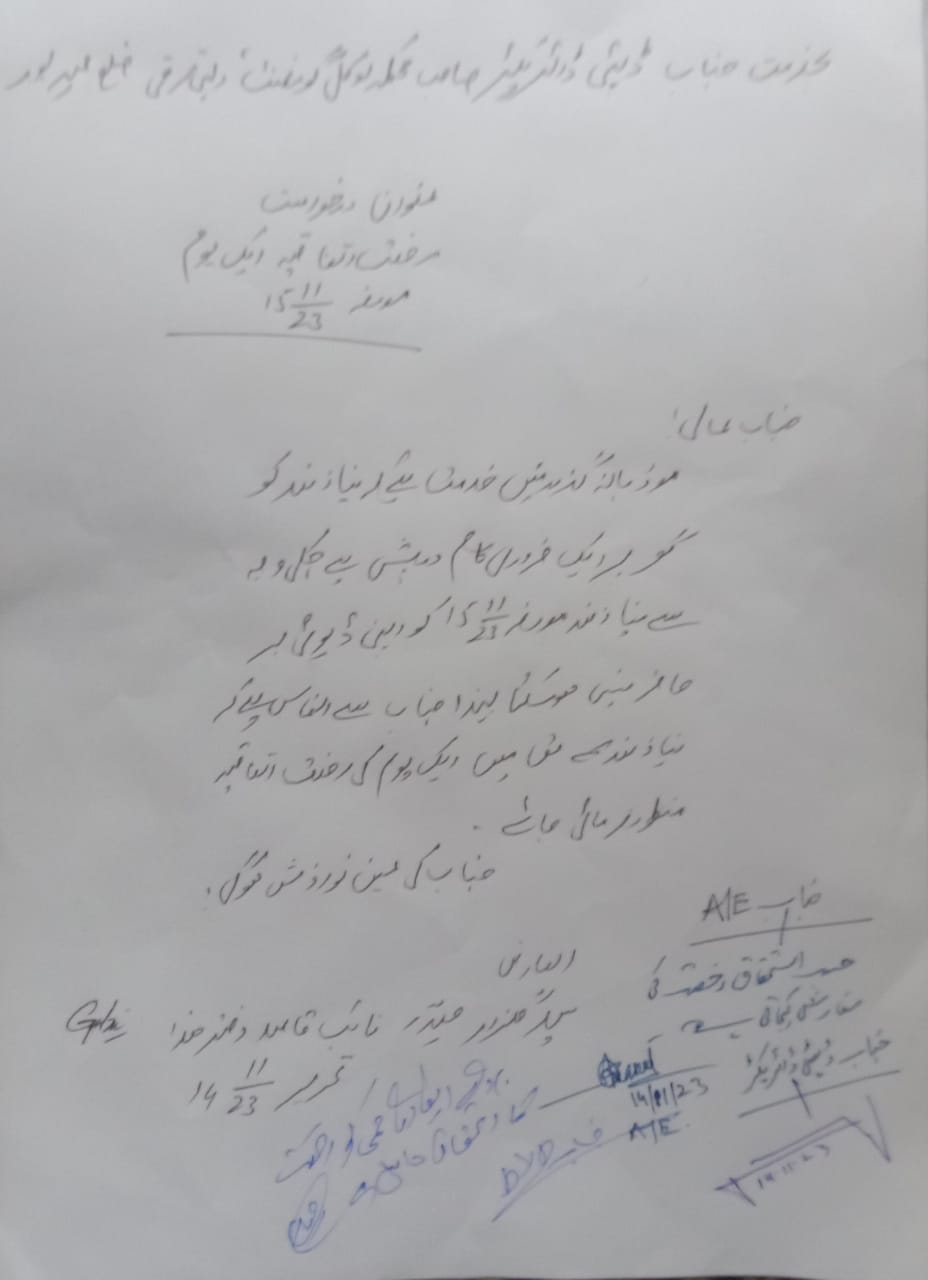 بخدمت جناب ڈپٹی ڈائریکٹر صاحب محکمہ لوکل گورنمنٹ دیہی ترقی ضلع میرپور
عنوان درخواست
رخصت اتفاقیہ ایک یوم
مورخہ 15 11/23
جناب عالی!
مودبانہ گذارش خدمت ہیکہ نیازمند کو
گھر پر ایک ضروری کام درپیش ہے جسکی وجہ
سے نیازمند مورخہ 15 11/23 کو اپنی ڈیوٹی پر
حاضر نہیں ہوسکتا لہذا جناب سے التماس ہیکہ
نیازمند کے حق میں ایک یوم کی رخصت اتفاقیہ
منظور فرمائی جائے ۔
جناب کی عین نوازش ہوگی ۔
العارض
حیدر نائب قاصد دفتر ھذا
تحریر 14 11/23
جناب A/E
حسب استحقاق رخصت کی
سفارش کیجاتی ہے
14/11/23
A/E
جناب ڈپٹی ڈائریکٹر
14.11.23